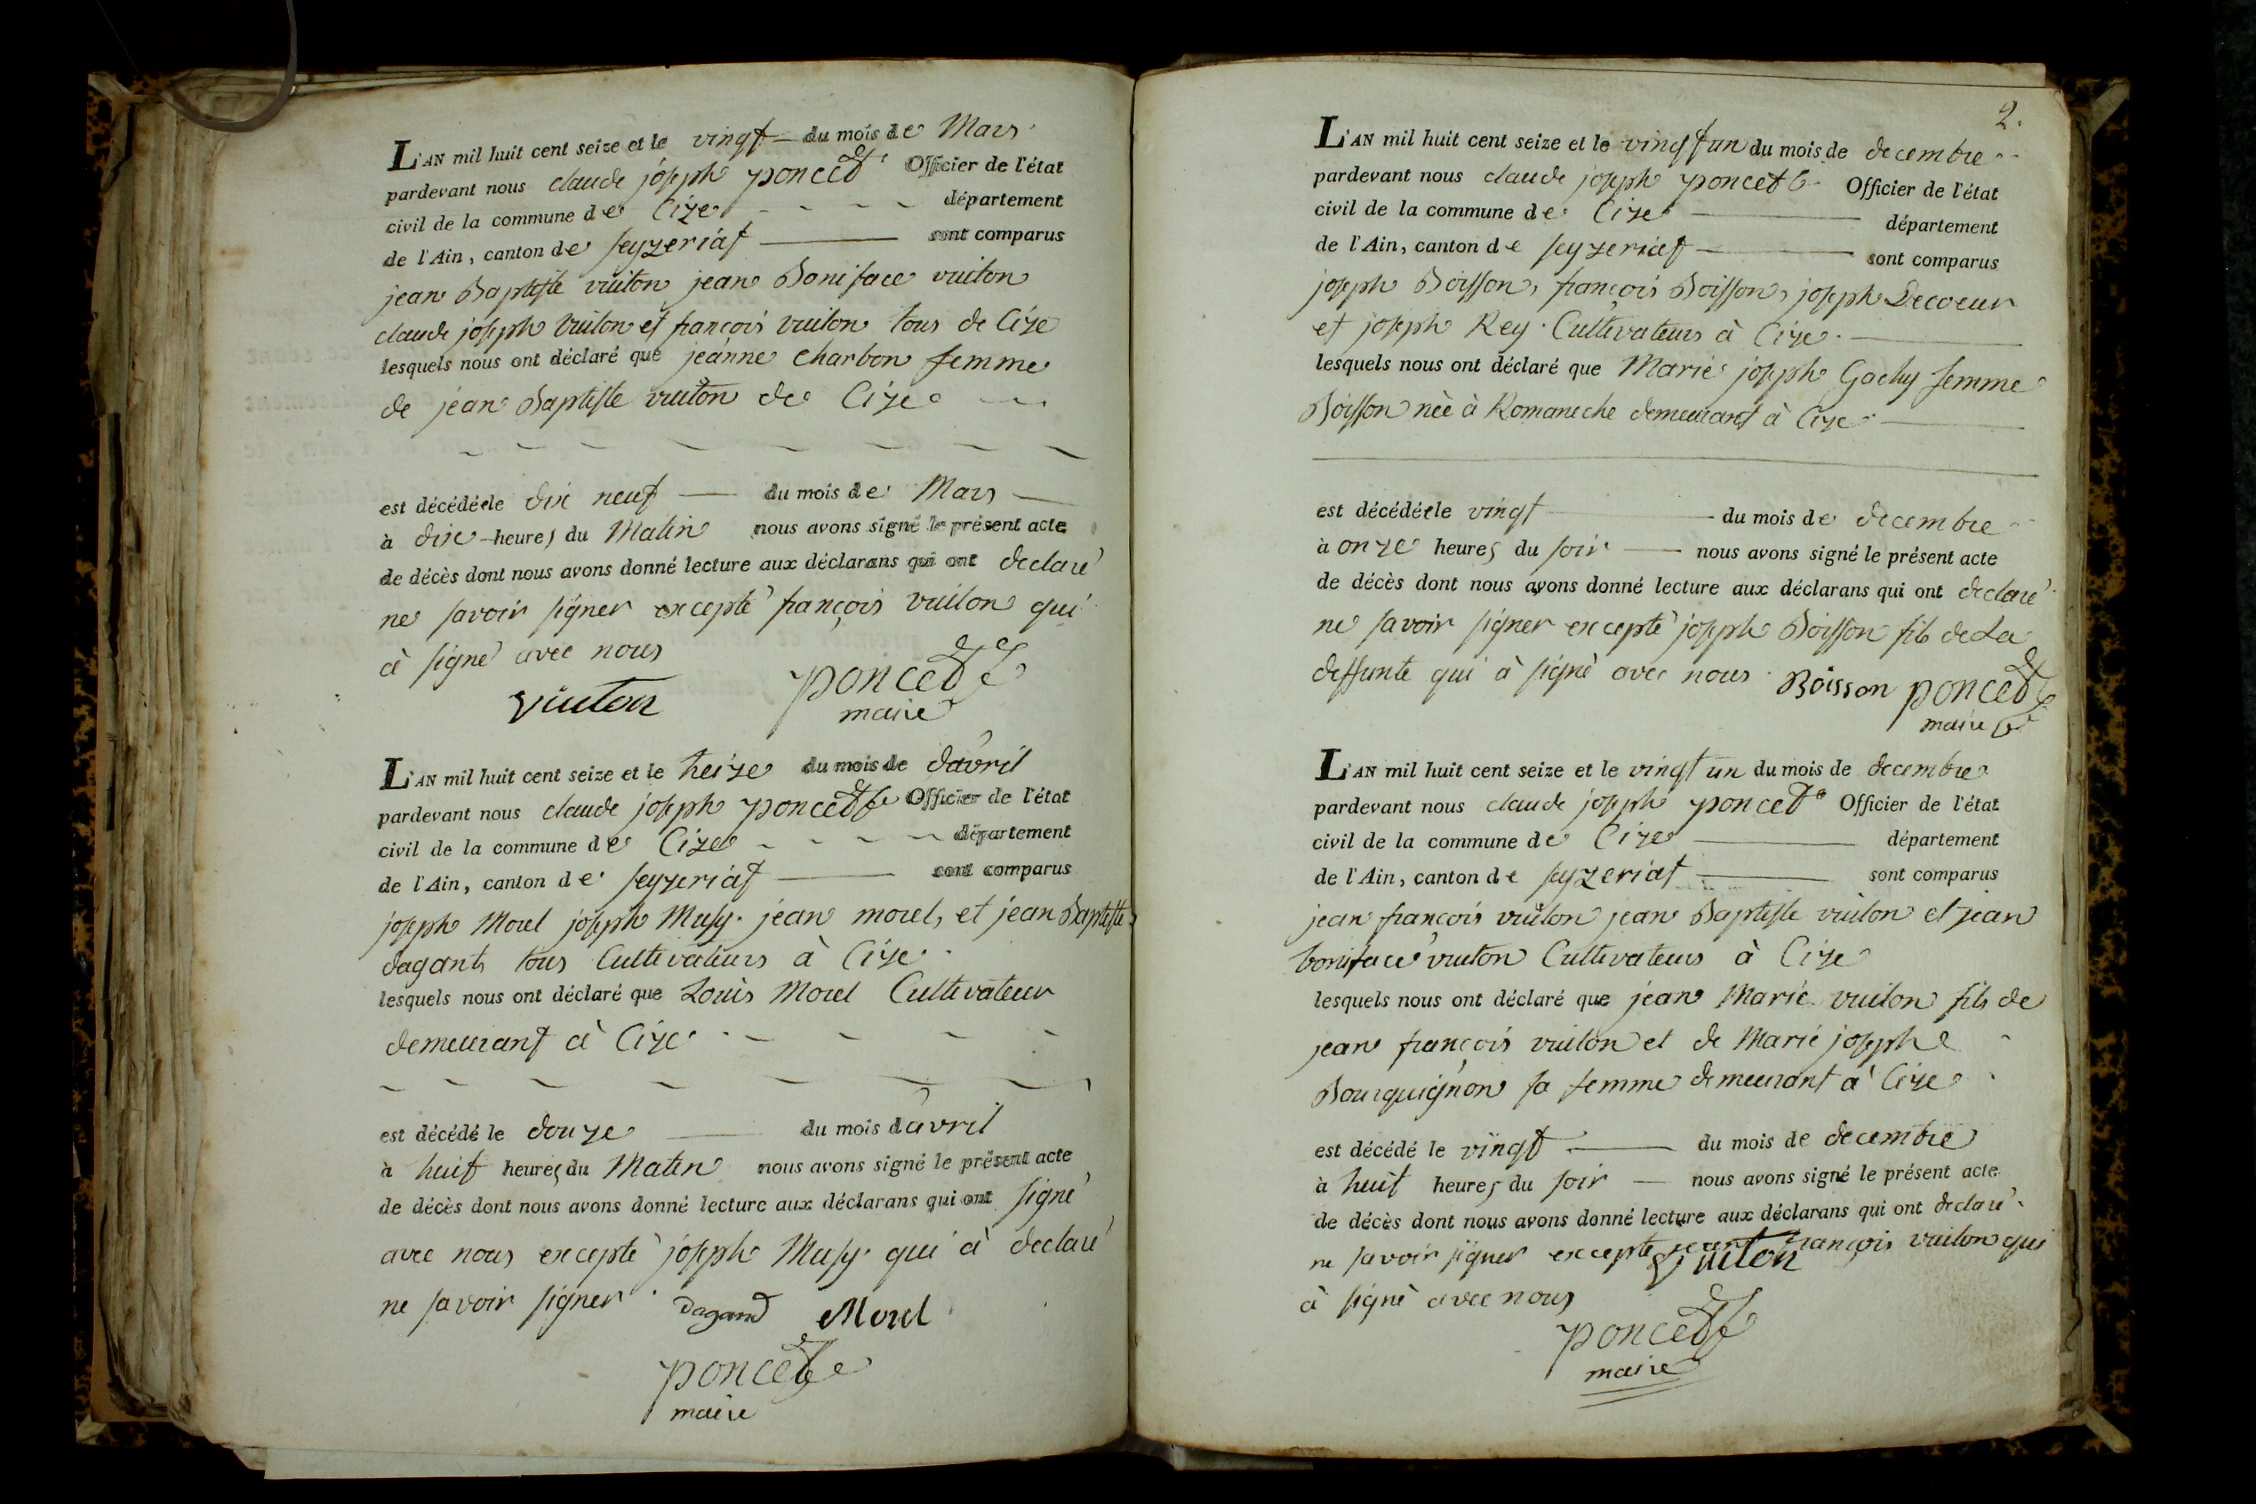 L'AN mil huit cent seize et le vingt du mois de Mars
pardevant nous claude joseph poncet Officier de l'état
civil de la commune de Cize département
de l'Ain, canton de seyzeriat sont comparus
jean Baptiste vuiton jean Boniface vuiton
claude joseph vuiton et françois vuiton tous de Cize
lesquels nous ont déclaré que jeanne charbon femme
de jean Baptiste vuiton de Cize
est décédée le dix neuf du mois de Mars
à dix heures du Matin nous avons signé le présent acte
de décès dont nous avons donné lecture aux déclarans qui ont declaré
ne savoir signer excepté françois vuiton qui
à signé avec nous
vuiton poncet
maire
L'AN mil huit cent seize et le treize du mois de d'avril
pardevant nous claude joseph poncet Officier de l'état
civil de la commune de Cize département
de l'Ain, canton de seyzeriat sont comparus
joseph Morel joseph Musy jean morel, et jean Baptiste
dagant tous Cultivateurs à Cize
lesquels nous ont déclaré que Louis Morel Cultivateur
demeurant à Cize
est décédé le douze du mois d'avril
à huit heures du Matin nous avons signé le présent acte
de décès dont nous avons donné lecture aux déclarans qui ont signé
avec nous excepté joseph Musy qui à declaré
ne savoir signer dagand Morel
poncet
maire
2.
L'AN mil huit cent seize et le vingt un du mois de decembre
pardevant nous claude joseph poncet Officier de l'état
civil de la commune de Cize département
de l'Ain, canton de seyzeriat sont comparus
joseph Boisson, françois Boisson, joseph Decoeur
et joseph Rey Cultivateurs à Cize
lesquels nous ont déclaré que Marie joseph Gachy femme
Boisson née à Romaneche demeurant à Cize
est décédée le vingt du mois de decembre
à onze heures du soir nous avons signé le présent acte
de décès dont nous avons donné lecture aux déclarans qui ont declaré
ne savoir signer excepté joseph Boisson fils de La
deffunte qui à signé avec nous Boisson poncet
maire
L'AN mil huit cent seize et le vingt un du mois de decembre
pardevant nous claude joseph poncet Officier de l'état
civil de la commune de Cize département
de l'Ain, canton de seyzeriat sont comparus
jean françois vuiton jean Baptiste vuiton et jean
boniface vuiton Cultivateurs à Cize
lesquels nous ont déclaré que jean Marie vuiton fils de
jean françois vuiton et de Marie joseph
Bourguignon sa femme demeurant à Cize
est décédé le vingt du mois de decembre
à huit heures du soir nous avons signé le présent acte
de décès dont nous avons donné lecture aux déclarans qui ont declaré
ne savoir signer excepté jean françois vuiton qui
à signé avec nous vuiton
poncet
maire